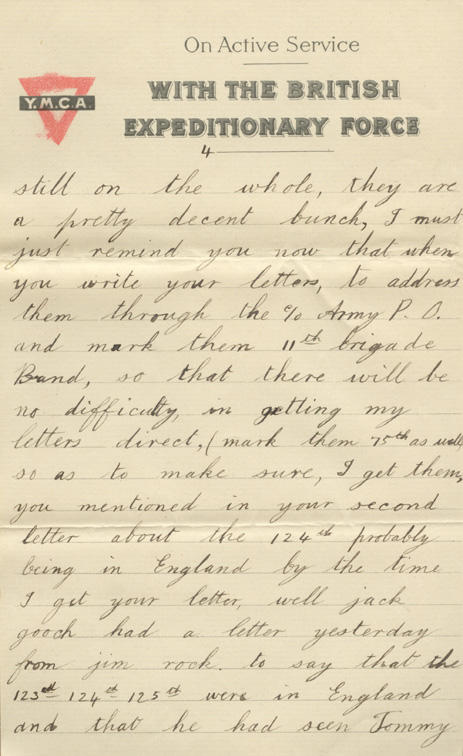 On Active Service
Y.M.C.A.
WITH THE BRITISH
EXPEDITIONARY FORCE
4
still on the whole, they are
a pretty decent bunch, I must
just remind you now that when
you write your letters, to address
them through the c/o Army P. O.
and mark them 11th brigade
Band, so that there will be
no difficulty, in getting my
letters direct, (mark them 75th as well,
so as to make sure, I get them,
you mentioned in your second
letter about the 124th probably
being in England by the time
I get your letter, well jack
gooch had a letter yesterday
from jim rock. to say that the
123rd 124th 125th were in England
and that he had seen Tommy